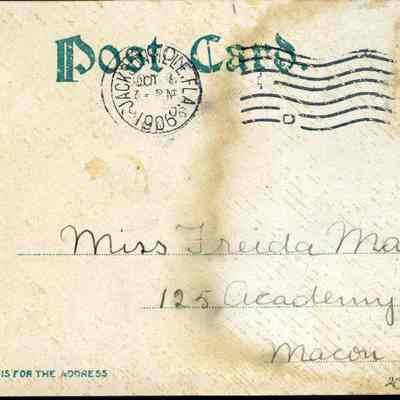 Post Card.
JACKSONVILLE, FLA.
OCT
1906
Miss Freida Ma
125 Academy
Macon
IS FOR THE ADDRESS